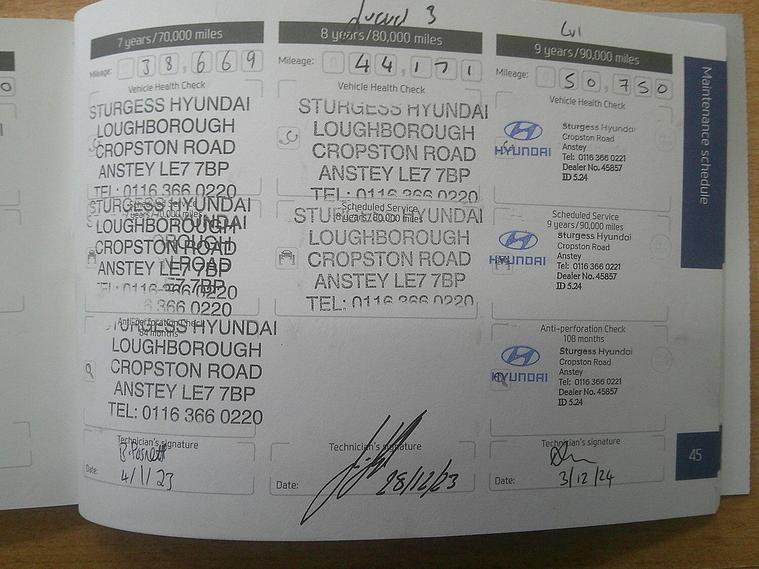 Level 3
Lvl
7 years/70,000 miles
Mileage: 38,669
Vehicle Health Check
STURGESS HYUNDAI
LOUGHBOROUGH
CROPSTON ROAD
ANSTEY LE7 7BP
TEL: 0116 366 0220
STURGESS HYUNDAI
7 years/70,000 miles
LOUGHBOROUGH
CROPSTON ROAD
ANSTEY LE7 7BP
TEL: 0116 366 0220
Anti-perforation Check
84 months
STURGESS HYUNDAI
LOUGHBOROUGH
CROPSTON ROAD
ANSTEY LE7 7BP
TEL: 0116 366 0220
Technician's signature
Date: 4/1/23
8 years/80,000 miles
Mileage: 44,171
Vehicle Health Check
STURGESS HYUNDAI
LOUGHBOROUGH
CROPSTON ROAD
ANSTEY LE7 7BP
TEL: 0116 366 0220
Scheduled Service
8 years/80,000 miles
STURGESS HYUNDAI
LOUGHBOROUGH
CROPSTON ROAD
ANSTEY LE7 7BP
TEL: 0116 366 0220
Technician's signature
Date: 28/12/23
9 years/90,000 miles
Mileage: 50,750
Vehicle Health Check
HYUNDAI
Sturgess Hyundai
Cropston Road
Anstey
Tel: 0116 366 0221
Dealer No. 45857
ID 5.24
Scheduled Service
9 years/90,000 miles
HYUNDAI
Sturgess Hyundai
Cropston Road
Anstey
Tel: 0116 366 0221
Dealer No. 45857
ID 5.24
Anti-perforation Check
108 months
HYUNDAI
Sturgess Hyundai
Cropston Road
Anstey
Tel: 0116 366 0221
Dealer No. 45857
ID 5.24
Technician's signature
Date: 3/12/24
Maintenance schedule
45